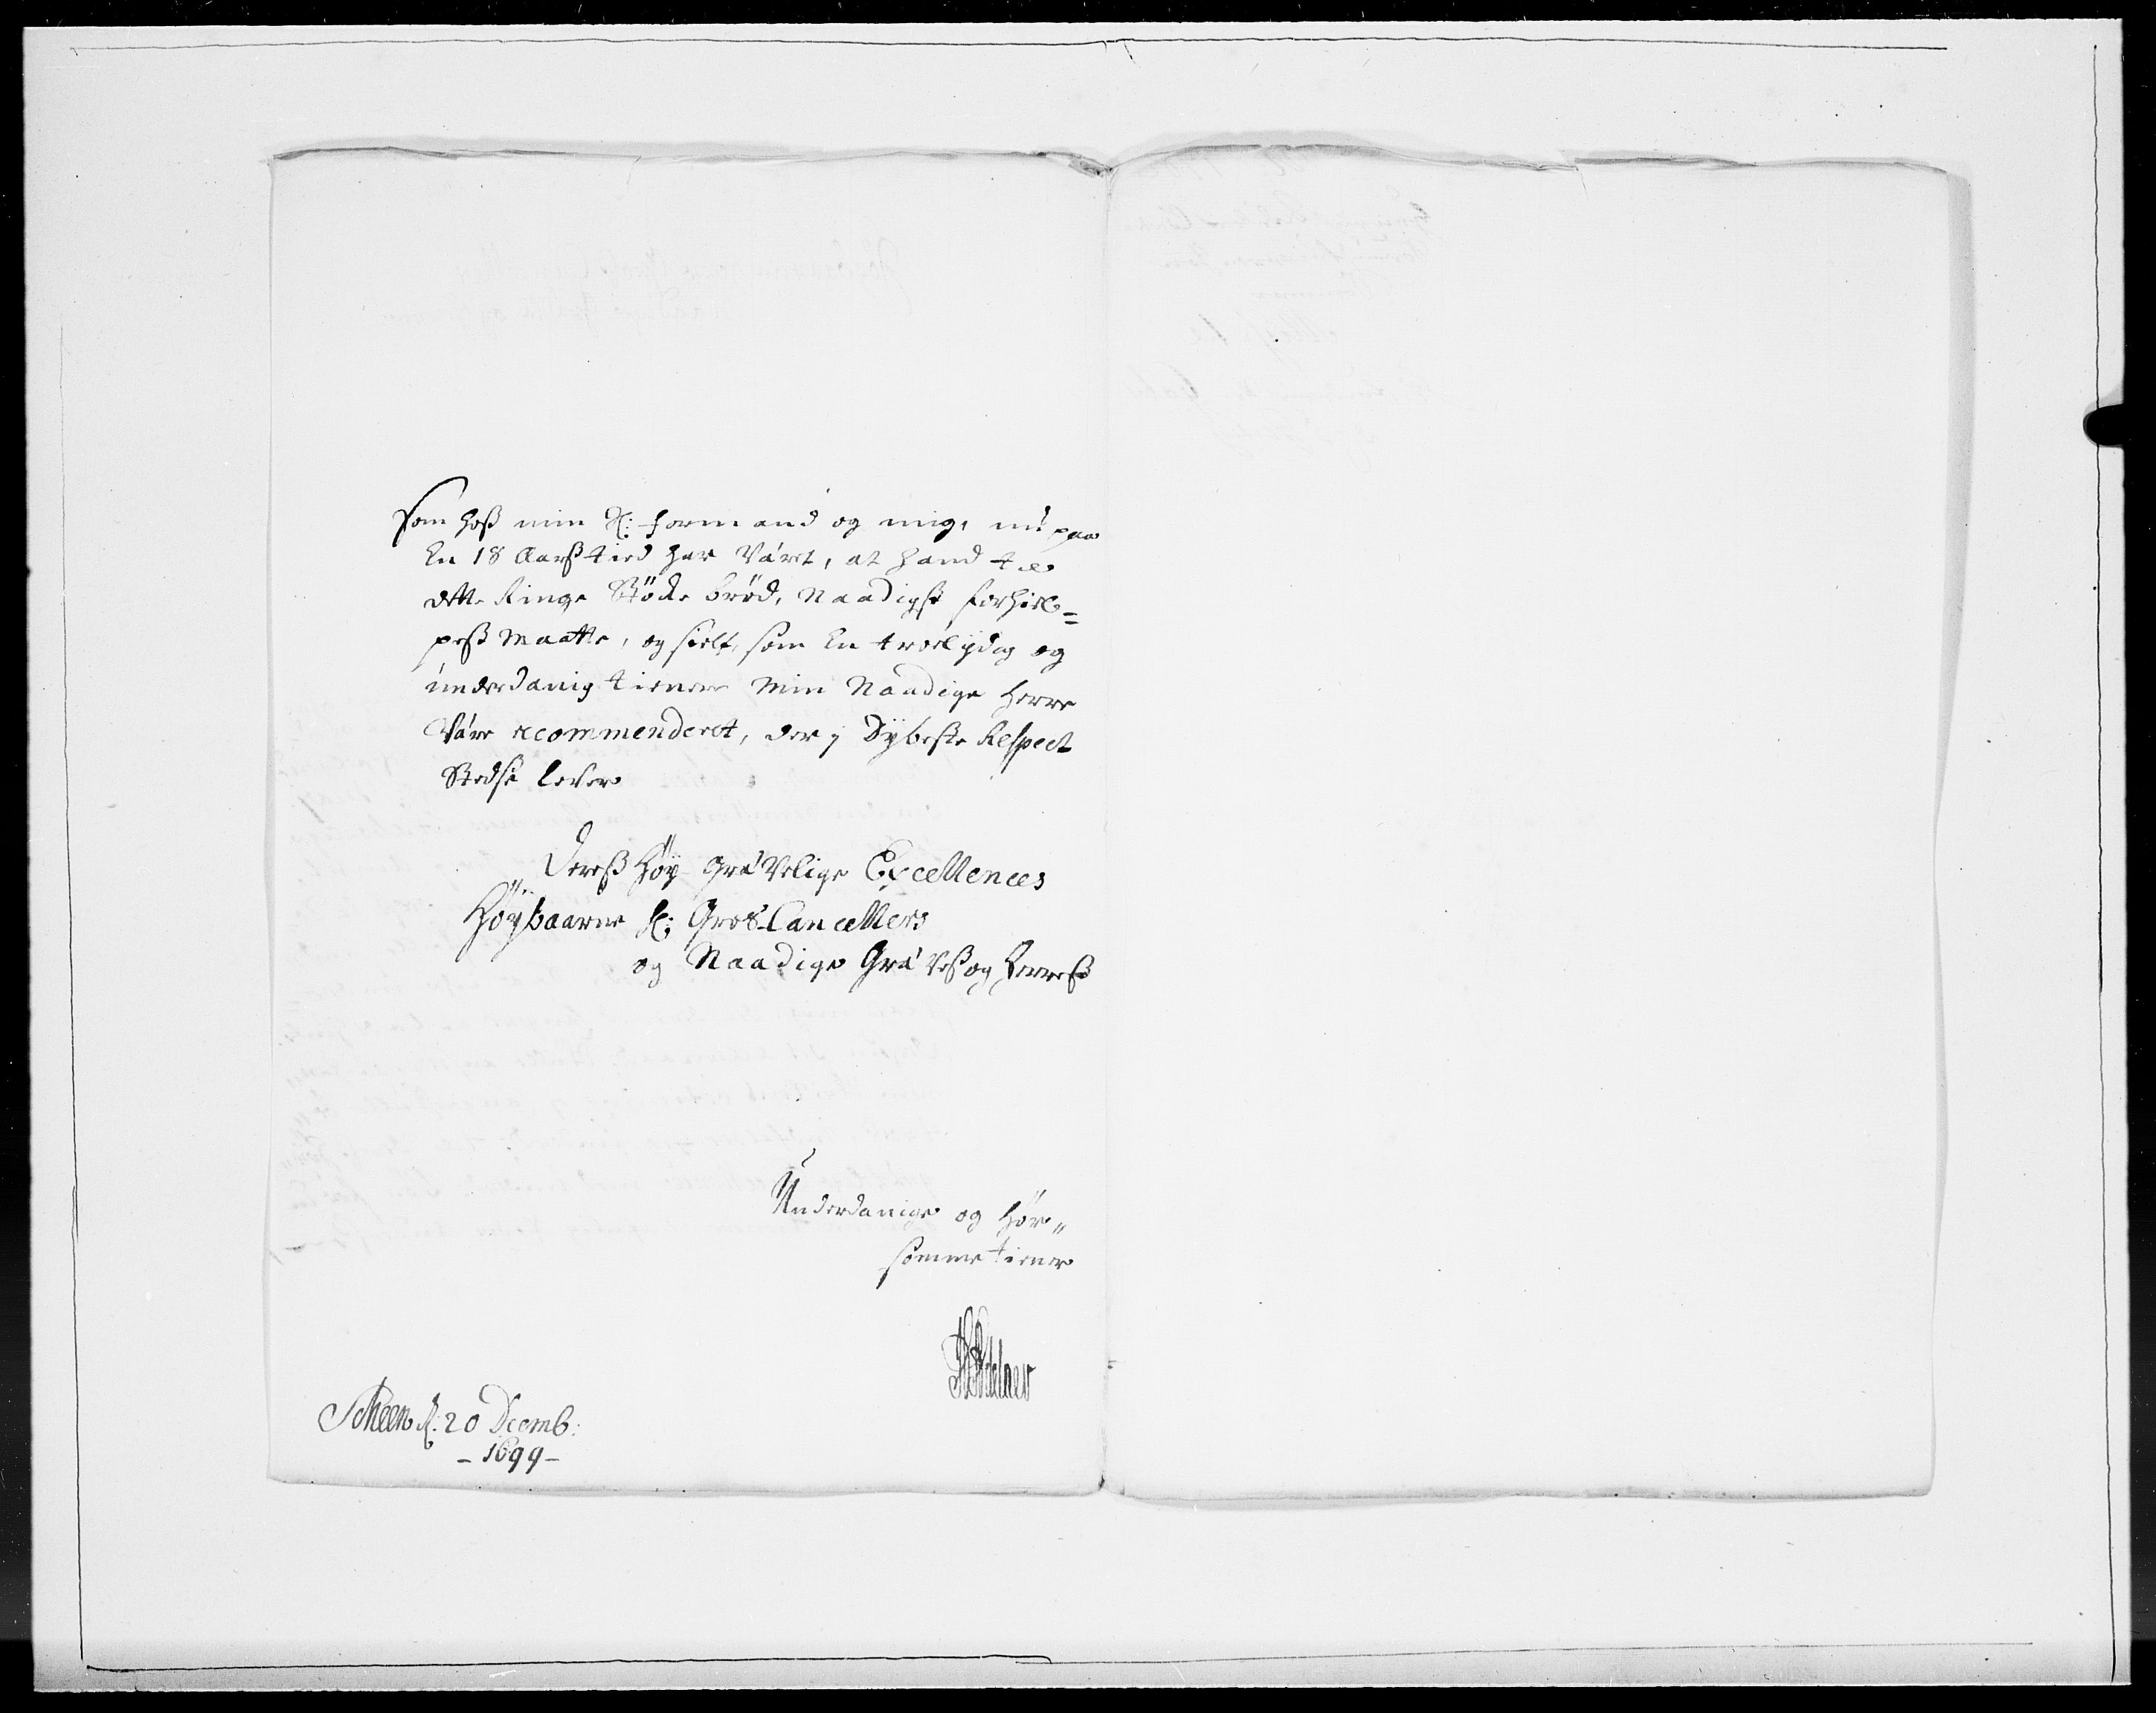 Som hoß min S: formand og mig, nu paa
En 18 Aarß tied har Vært, at hand til
dette Ringe Støcke brød, Naadigst forhiel=
peß maatte, og sielf, som En troelydig og
underdanig tiener Min Naadige Herre
Være recommenderet, der i Dybeste Respect
Stedse lever
Dereß Høy Grævelige Excellences
Høybaarne H: Gros-Cancellers
og Naadige Græveß og Herreß
Underdanige og Hør„
somme tiener
Scheen d: 20 Decemb:
- 1699 -